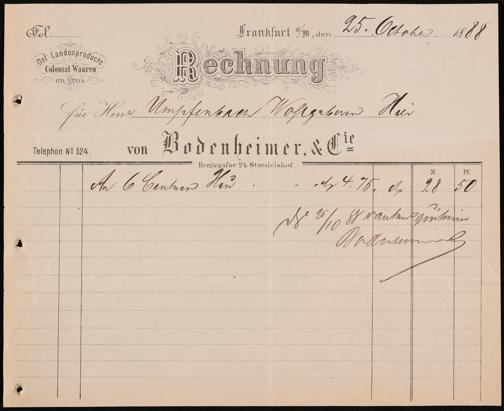 Fol.
Frankfurt a/M, den 25. October 1888
Del Landesproducte
Colonial-Waaren
EN GROS
Rechnung
für Herrn Umpfenbach Wohlgeboren Hier
Telephon № 524.
von Bodenheimer, & Cie
Breitegasse 24. Staedelshof.
M Pf.
An 6 Centner Heu . - M 4.75. M 28 50
25/10 88 dankend
Bodenheimer